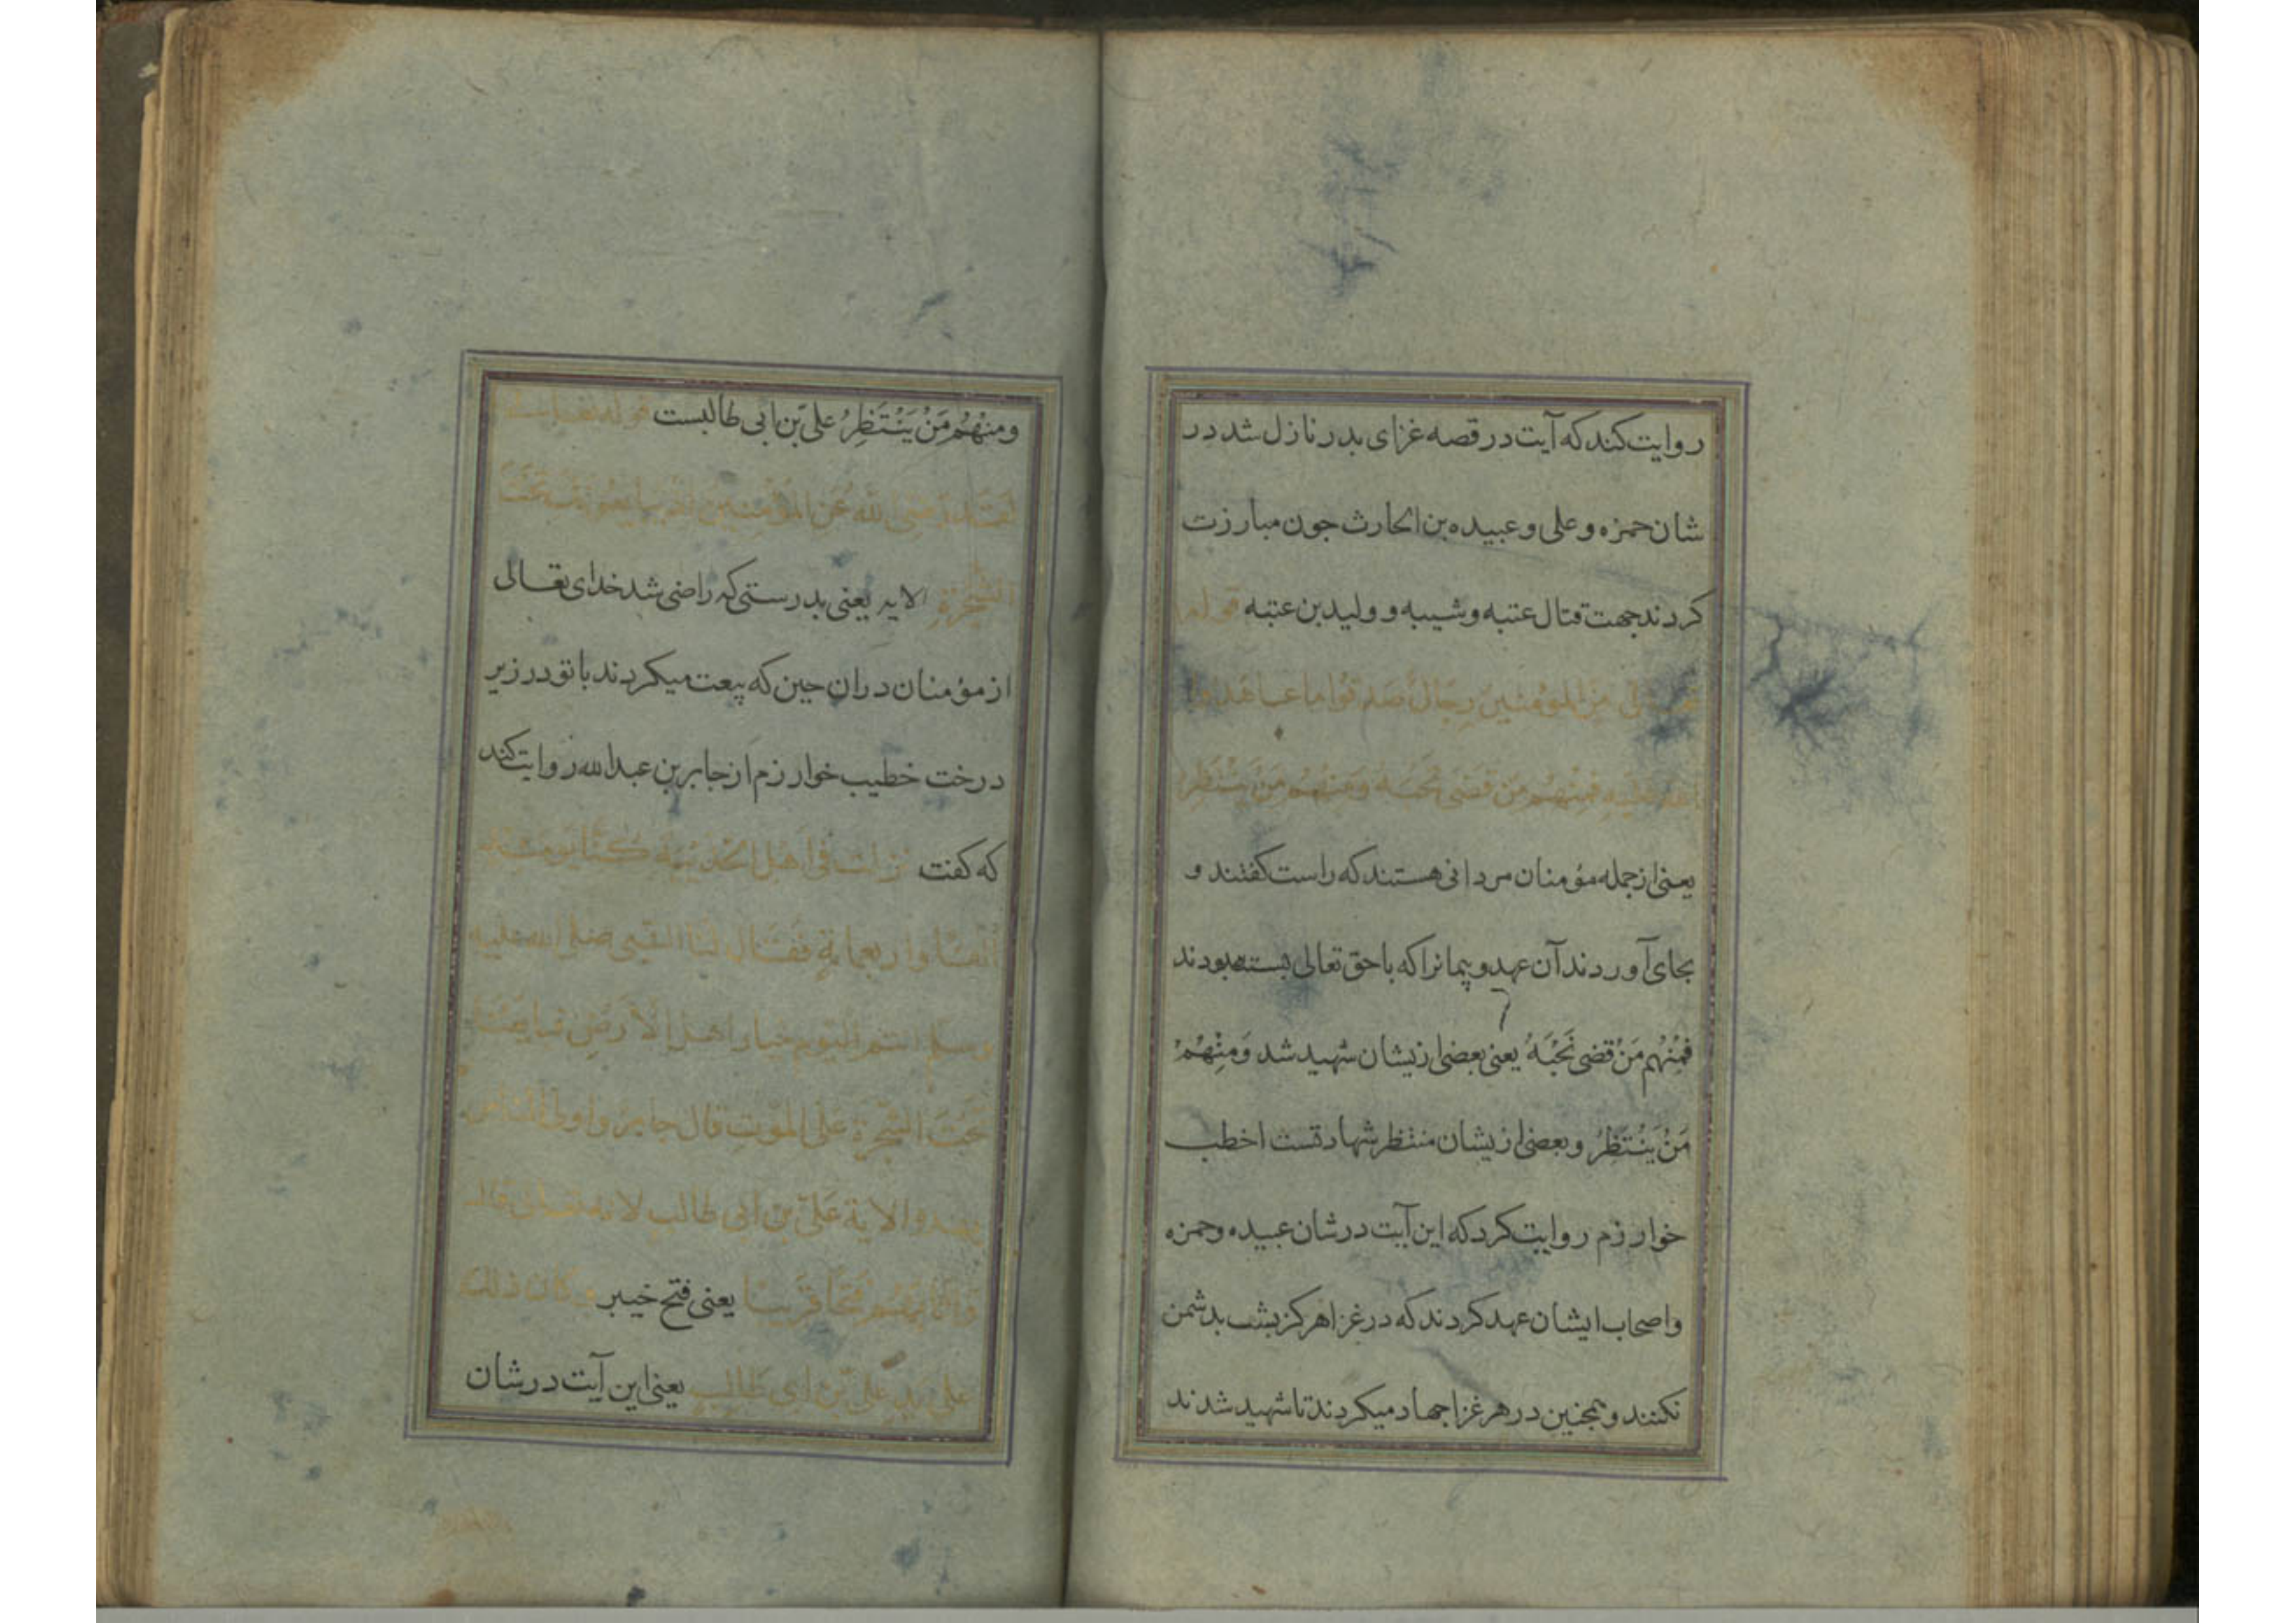 روایت کند که آیت در قصه غزای بدر نازل شد در
شان حمزه و علی و عبیده بن الحارث جون مبارزت
کردند جهت قتال عتبه و شیبه و ولید بن عتبه قوله
من المؤمنین رجال صدقوا ما عاهدوا
الله علیه فمنهم من قضی نحبه ومنهم من ینتظر
یعنی از جمله مؤمنان مردانی هستند که راست کفتند و
بجای آوردند آن عهد و پیمانرا که با حق تعالی بسته بودند
فَمِنْهُم مَنْ قَضی نَحْبَهُ یعنی بعضی ازیشان شهید شد وَمِنْهُمْ
مَنْ یَنْتَظِرُ و بعضی ازیشان منتظر شهادتست اخطب
خوارزم روایت کرد که این آیت در شان عبیده و حمزه
و اصحاب ایشان عهد کردند که در غزا هرکز بشت بدشمن
نکنند و همجنین در هر غزا جهاد میکردند تا شهید شدند
ومنْهُمْ مَنْ یَنْتَظِرُ علی بن ابی طالبست قوله تعالی
لقد رضی الله عن المؤمنین اذ یبایعونک تحت
الشجرة الایه یعنی بدرستی که راضی شد خدای تعالی
از مؤمنان دران حین که بیعت میکردند با تو در زیر
درخت خطیب خوارزم از جابر بن عبدالله روایت کند
که کفت نزلت فی اهل الحدیبیة کنا یومئذ
الفا واربعمایة فقال لنا النبی صلی الله علیه
وسلم انتم الیوم خیار اهل الارض فبایعنا
تحت الشجرة علی الموت قال جابر واولی الناس
بهذه الایة علی بن ابی طالب لانه تعالی قال
واثابهم فتحا قریبا یعنی فتح خیبر وکان ذلک
علی ید علی بن ابی طالب یعنی این آیت در شان